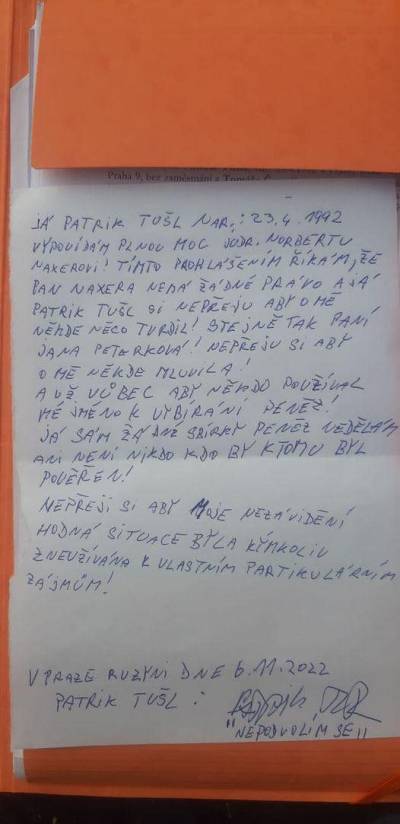 Praha 9, bez zaměstnání a
JÁ PATRIK TUŠL NAR.: 23.4.1992
VYPOVÍDÁM PLNOU MOC JUDR. NORBERTU
NAXEROVI! TÍMTO PROHLÁŠENÍM ŘÍKÁM, ŽE
PAN NAXERA NEMÁ ŽÁDNÉ PRÁVO A JÁ
PATRIK TUŠL SI NEPŘEJU ABY O MĚ
NĚKDE NĚCO TVRDIL! STEJNĚ TAK PANÍ
JANA PETERKOVÁ! NEPŘEJU SI ABY
O MĚ NĚKDE MLUVILA!
A UŽ VŮBEC ABY NĚKDO POUŽÍVAL
MÉ JMÉNO K VYBÍRÁNÍ PENĚZ!
JÁ SÁM ŽÁDNÉ SBÍRKY PENĚZ NEDĚLÁM
ANI NENÍ NIKDO KDO BY K TOMU BYL
POVĚŘEN!
NEPŘEJI SI ABY MOJE NEZÁVIDĚNÍ
HODNÁ SITUACE BYLA KÝMKOLIV
ZNEUŽÍVÁNA K VLASTNÍM PARTIKULÁRNÍM
ZÁJMŮM!
V PRAZE RUZYNI DNE 6.11.2022
PATRIK TUŠL :
"NEPODVOLÍM SE"